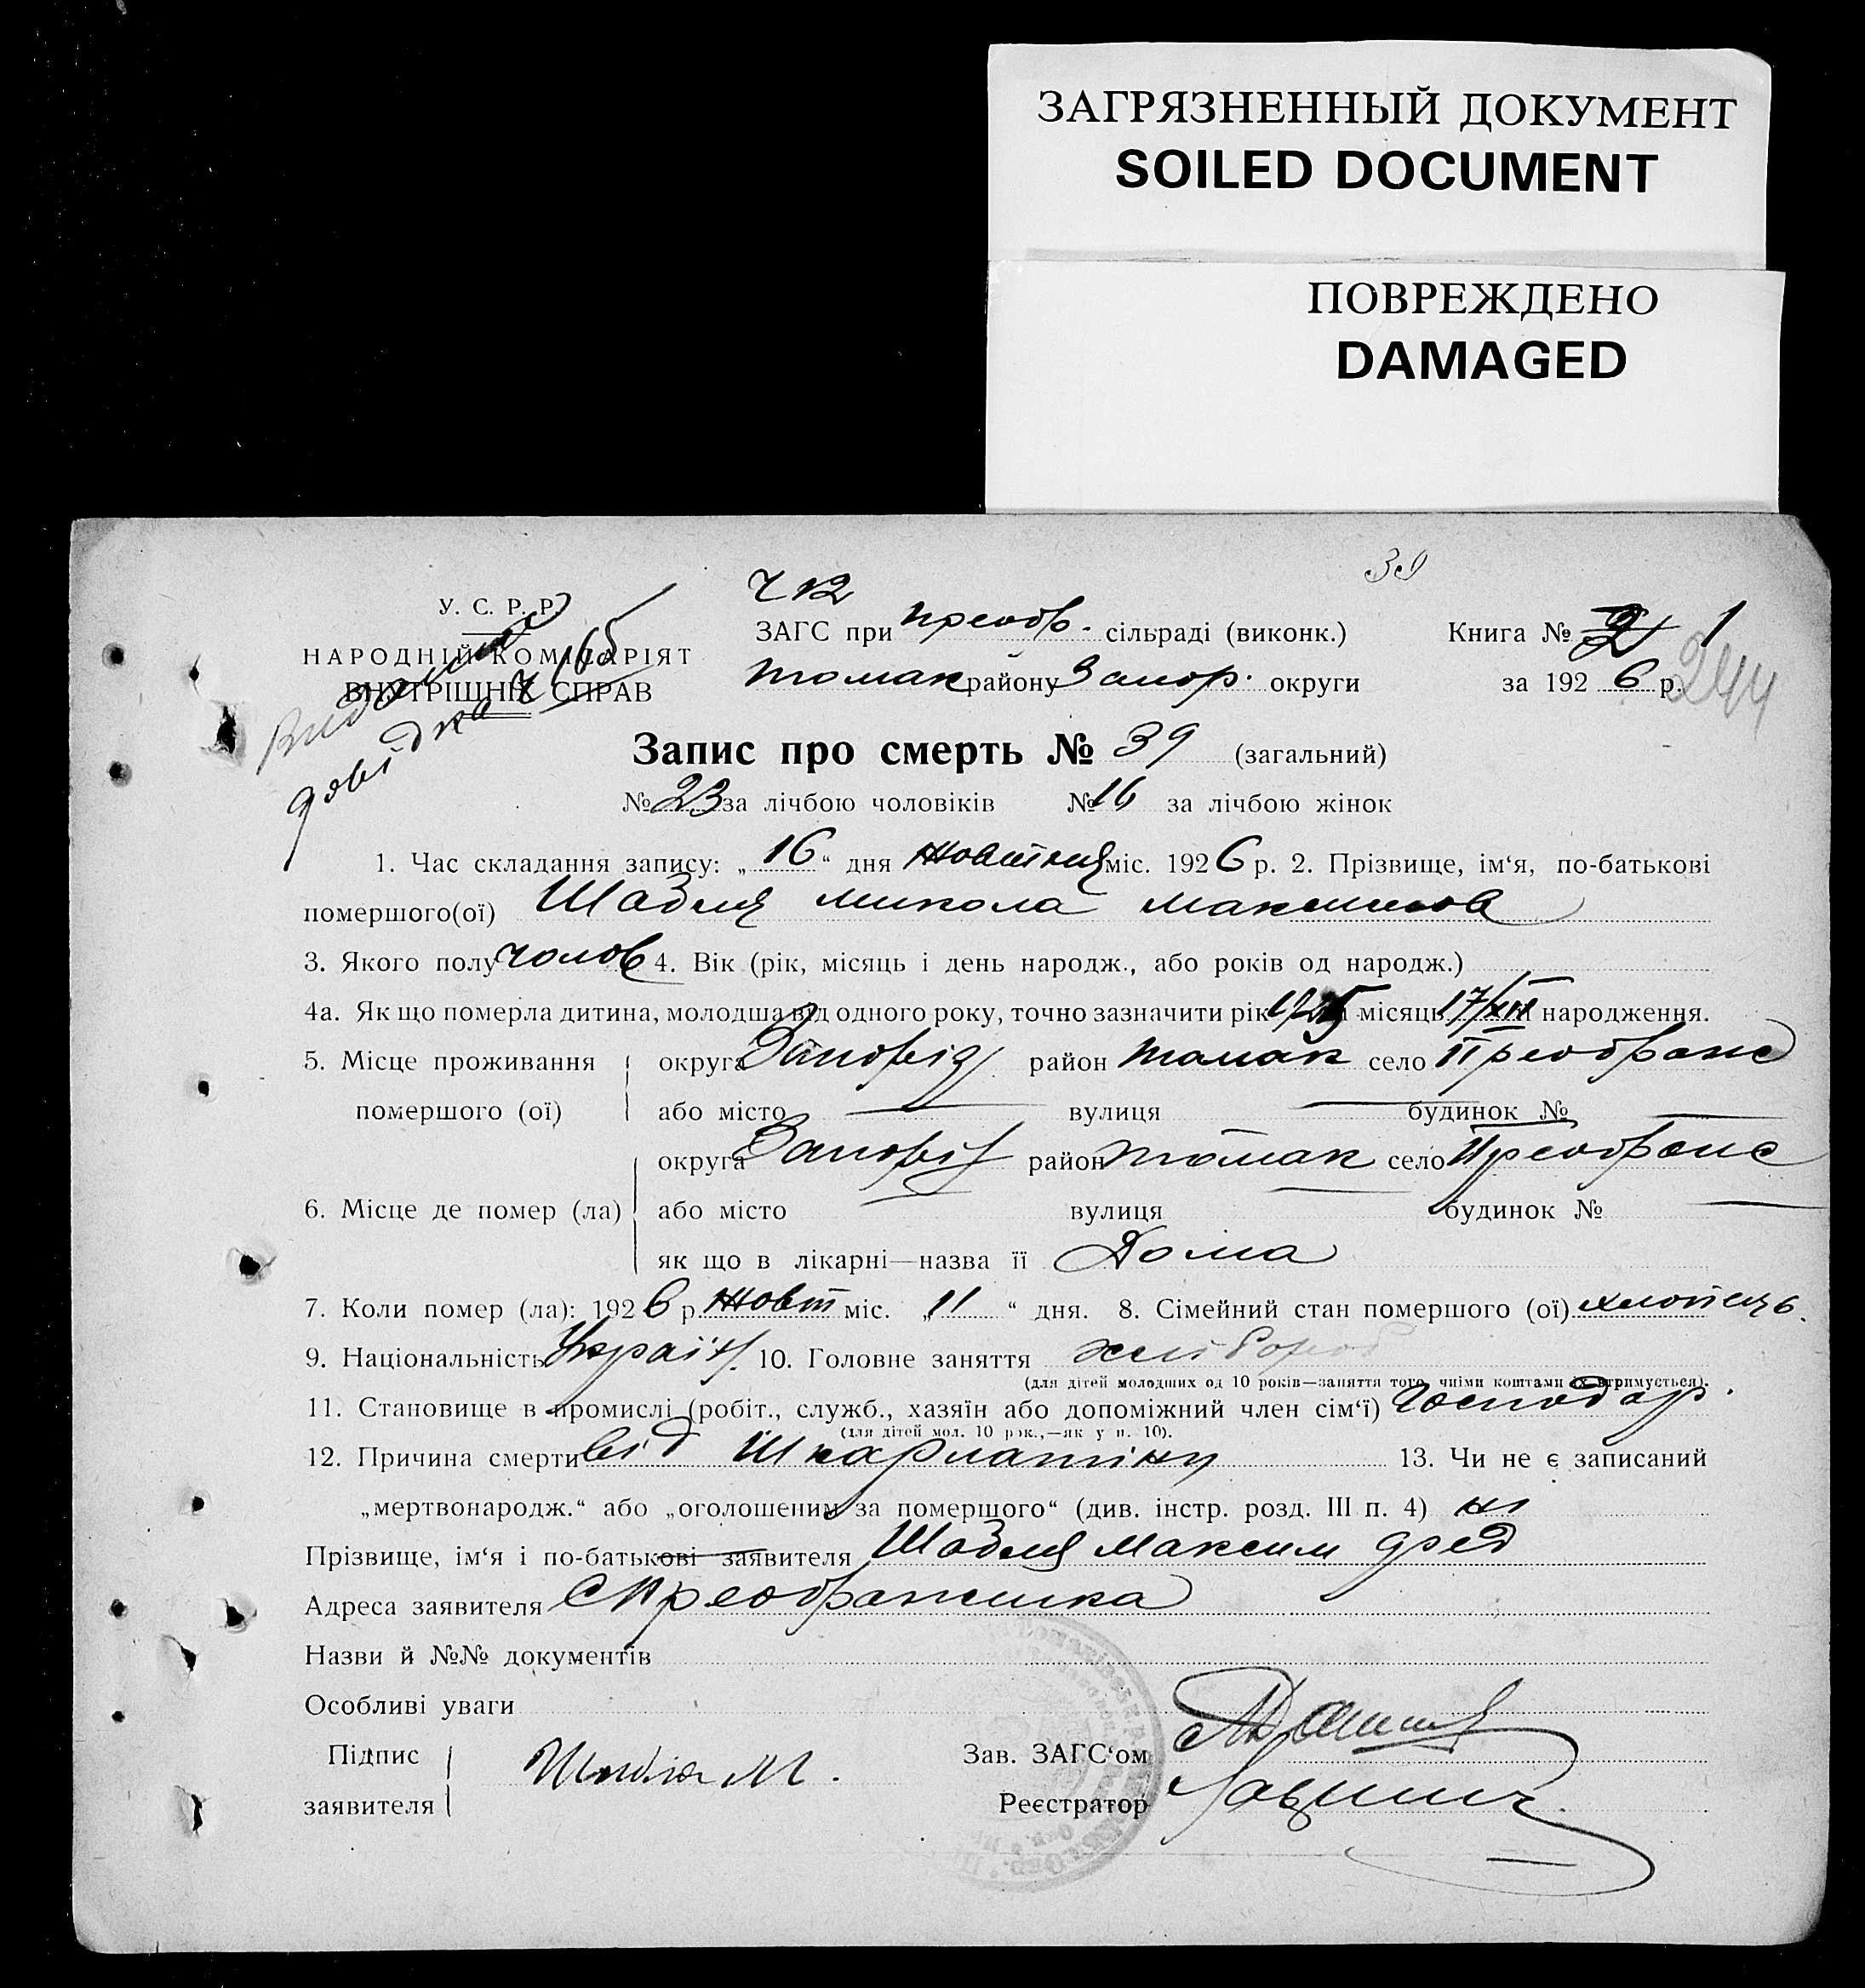 ЗАГРЯЗНЕННЫЙ ДОКУМЕНТ
SOILED DOCUMENT
ПОВРЕЖДЕНО
DAMAGED
39
У. С. Р. Р.
НАРОДНІЙ КОМІСАРІЯТ
ВНУТРІШНІХ СПРАВ
Видана
довідка Ч 165
Ч 12
ЗАГС при Преобр. сільраді (виконк.)
Книга № 1
Томак району Запор. округи
за 1926 р.
244
Запис про смерть № 39 (загальний)
№ 23 за лічбою чоловіків № 16 за лічбою жінок
1. Час складання запису: „16“ дня Жовтня міс. 1926 р. 2. Прізвище, ім‘я, по-батькові
помершого(ої) Шабля Микола Максимов
3. Якого полу чолов 4. Вік (рік, місяць і день народж., або років од народж.)
4а. Як що померла дитина, молодша від одного року, точно зазначити рік 1925 місяць 17/XII народження.
5. Місце проживання
помершого (ої)
округа район Томак село Преображе
або місто вулиця будинок №
6. Місце де помер (ла)
округа район Томак село Преображе
або місто вулиця будинок №
як що в лікарні—назва її Дома
7. Коли помер (ла): 1926 р. Жовт міс. „11“ дня. 8. Сімейний стан помершого (ої) хлопець.
9. Національність Україн. 10. Головне заняття хлібороб
(для дітей молодших од 10 років—заняття того, чиїми коштами їх втримується).
11. Становище в промислі (робіт., служб., хазяїн або допоміжний член сім‘ї) Господар.
(для дітей мол. 10 рок.,—як у п. 10).
12. Причина смерти від Шкарлатіни 13. Чи не є записаний
„мертвонародж.“ або „оголошеним за помершого“ (див. інстр. розд. III п. 4) ні
Прізвище, ім‘я і по-батькові заявителя Шабля Максим
Адреса заявителя С Преображенка
Назви й №№ документів
Особливі уваги
Підпис
заявителя
Шабля М.
Зав. ЗАГС‘ом
Реєстратор